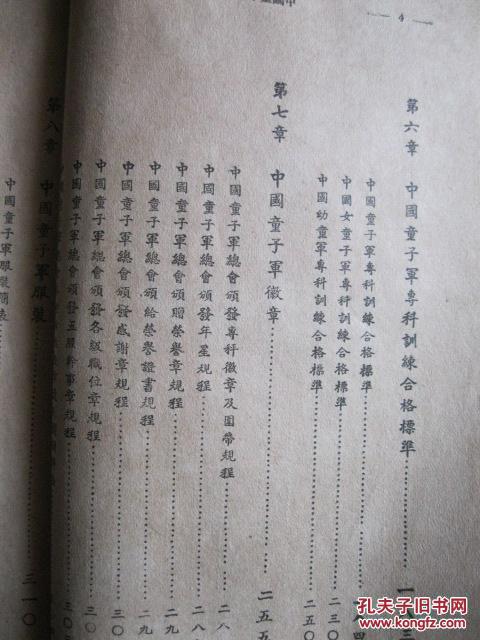 4
第六章 中國童子軍專科訓練合格標準
中國童子軍專科訓練合格標準
中國女童子軍專科訓練合格標準 二三〇
中國幼童軍專科訓練合格標準 二五〇
第七章 中國童子軍徽章 二五五
中國童子軍總會頒發專科徽章及圍帶規程
中國童子軍總會頒發年星規程
中國童子軍總會頒贈榮譽章規程
中國童子軍總會頒給榮譽證書規程
中國童子軍總會頒發感謝章規程
中國童子軍總會頒發各級職位章規程
中國童子軍總會頒發五服幹事章規程
第八章 中國童子軍服裝 三一〇
中國童子軍服裝簡表
孔夫子旧书网